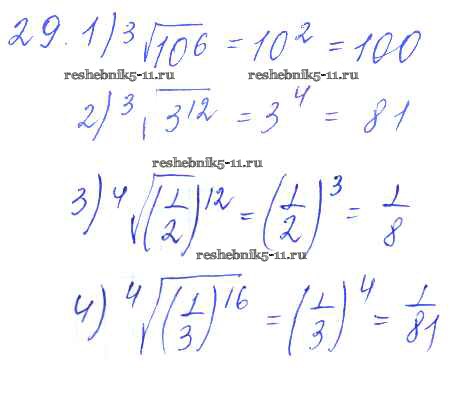 29. 1) ³√10⁶ = 10² = 100
reshebnik5-11.ru reshebnik5-11.ru
2) ³√3¹² = 3⁴ = 81
reshebnik5-11.ru
3) ⁴√(1/2)¹² = (1/2)³ = 1/8
reshebnik5-11.ru
4) ⁴√(1/3)¹⁶ = (1/3)⁴ = 1/81